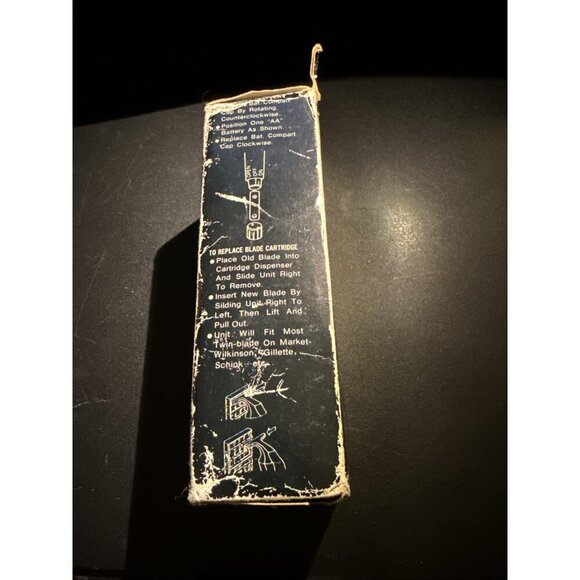 Bat. Compart
Cap By Rotating
Counterclockwise.
● Position One "AA"
Battery As Shown.
● Replace Bat. Compart
Cap Clockwise.
OPEN
OFF
ON
TO REPLACE BLADE CARTRIDGE
● Place Old Blade Into
Cartridge Dispenser
And Slide Unit Right
To Remove.
● Insert New Blade By
Silding Unit Right To
Left, Then Lift And
Pull Out.
● Unit Will Fit Most
Twin-blade On Market-
Wilkinson, Gillette,
Schick etc.